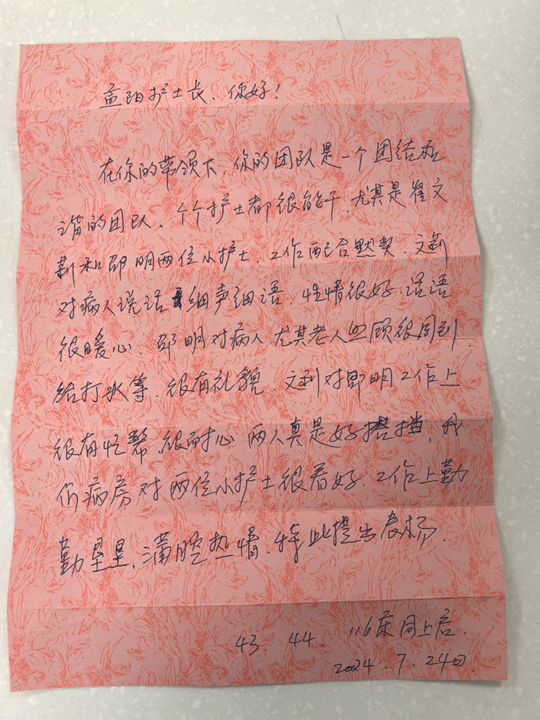 孟阳护士长、你好！
在你的带领下，你的团队是一个团结和
谐的团队、个个护士都很能干、尤其是崔文
莉和邵明两位小护士、工作配合默契、文莉
对病人说话细声细语、性情很好、话语
很暖心、邵明对病人尤其老人照顾很周到
给打水等、很有礼貌、文莉对邵明工作上
很有忙帮很耐心 两人真是好搭挡、我
们病房对两位小护士很看好、工作上勤
勤垦垦、满腔热情、特此提出表杨、
43 44 116床同上启、
2024.7.24日